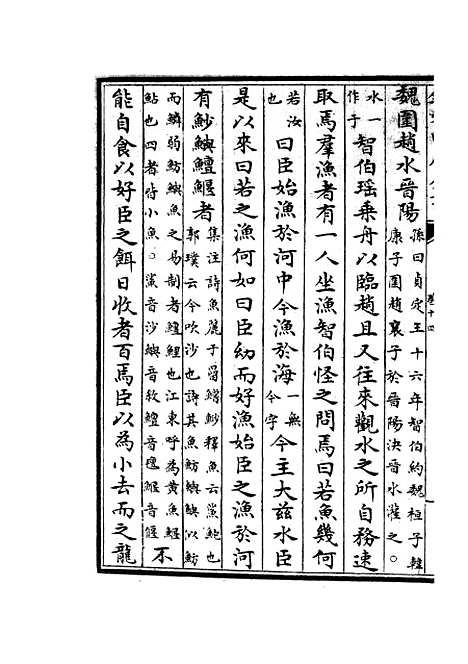 卷十四
魏圍趙水晉陽孫曰貞定王十六年智伯約魏桓子韓康子圍趙襄子於晉陽決晉水灌之○
水一作于智伯瑶乗舟以臨趙且又往來觀水之所自務速
取焉羣漁者有一人坐漁智伯怪之問焉曰若魚幾何
若汝也曰臣始漁於河中今漁於海一無今字今主大兹水臣
是以來曰若之漁何如曰臣幼而好漁始臣之漁於河
有魦鱮鱣鰋者集注詩魚麗于罶鱨魦釋魚云鯊鮀也郭璞云今吹沙也詩其魚魴鱮鱮似魴
而鱗弱魴鱮魚之易制者鱣鯉也江東呼為黄魚鰋鮎也四者皆小魚○鯊音沙鱮音敘鱣音邅鰋音偃不
能自食以好臣之餌日收者百焉臣以為小去而之龍